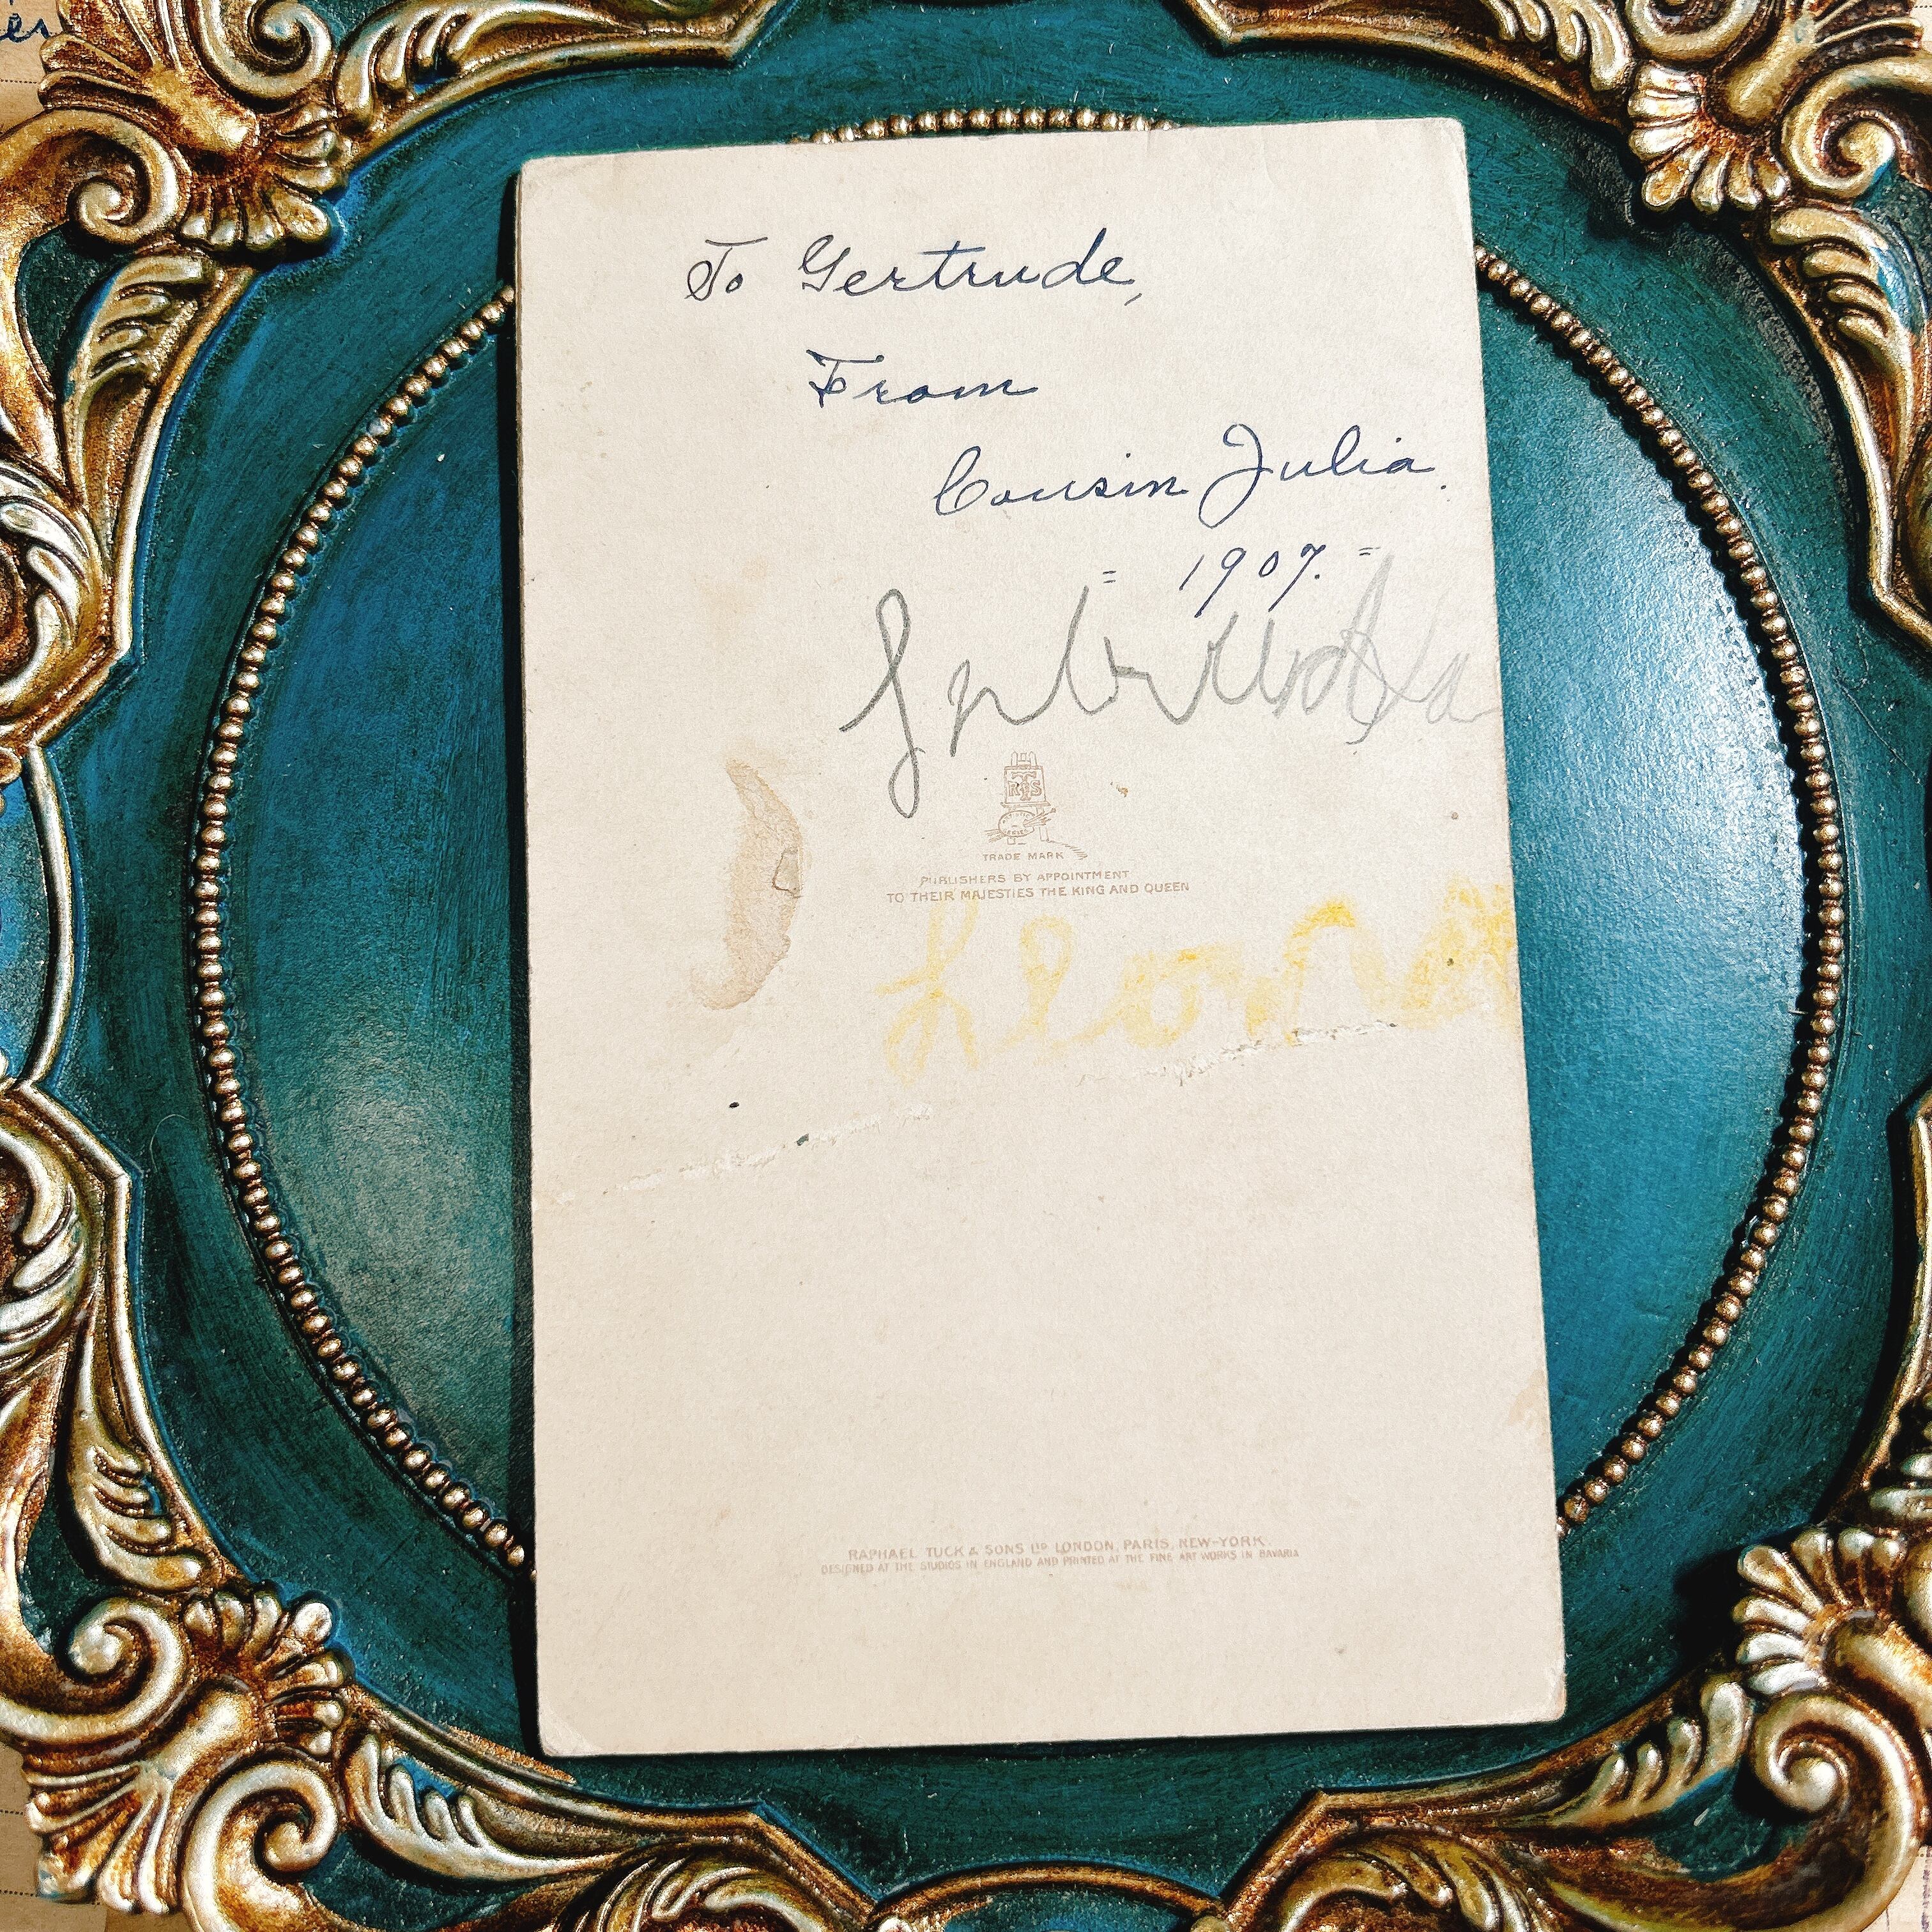 To Gertrude,
From
Cousin Julia.
= 1907. =
RTS
TRADE MARK
PUBLISHERS BY APPOINTMENT
TO THEIR MAJESTIES THE KING AND QUEEN
RAPHAEL TUCK & SONS LTD LONDON, PARIS, NEW-YORK.
DESIGNED AT THE STUDIOS IN ENGLAND AND PRINTED AT THE FINE ART WORKS IN BAVARIA